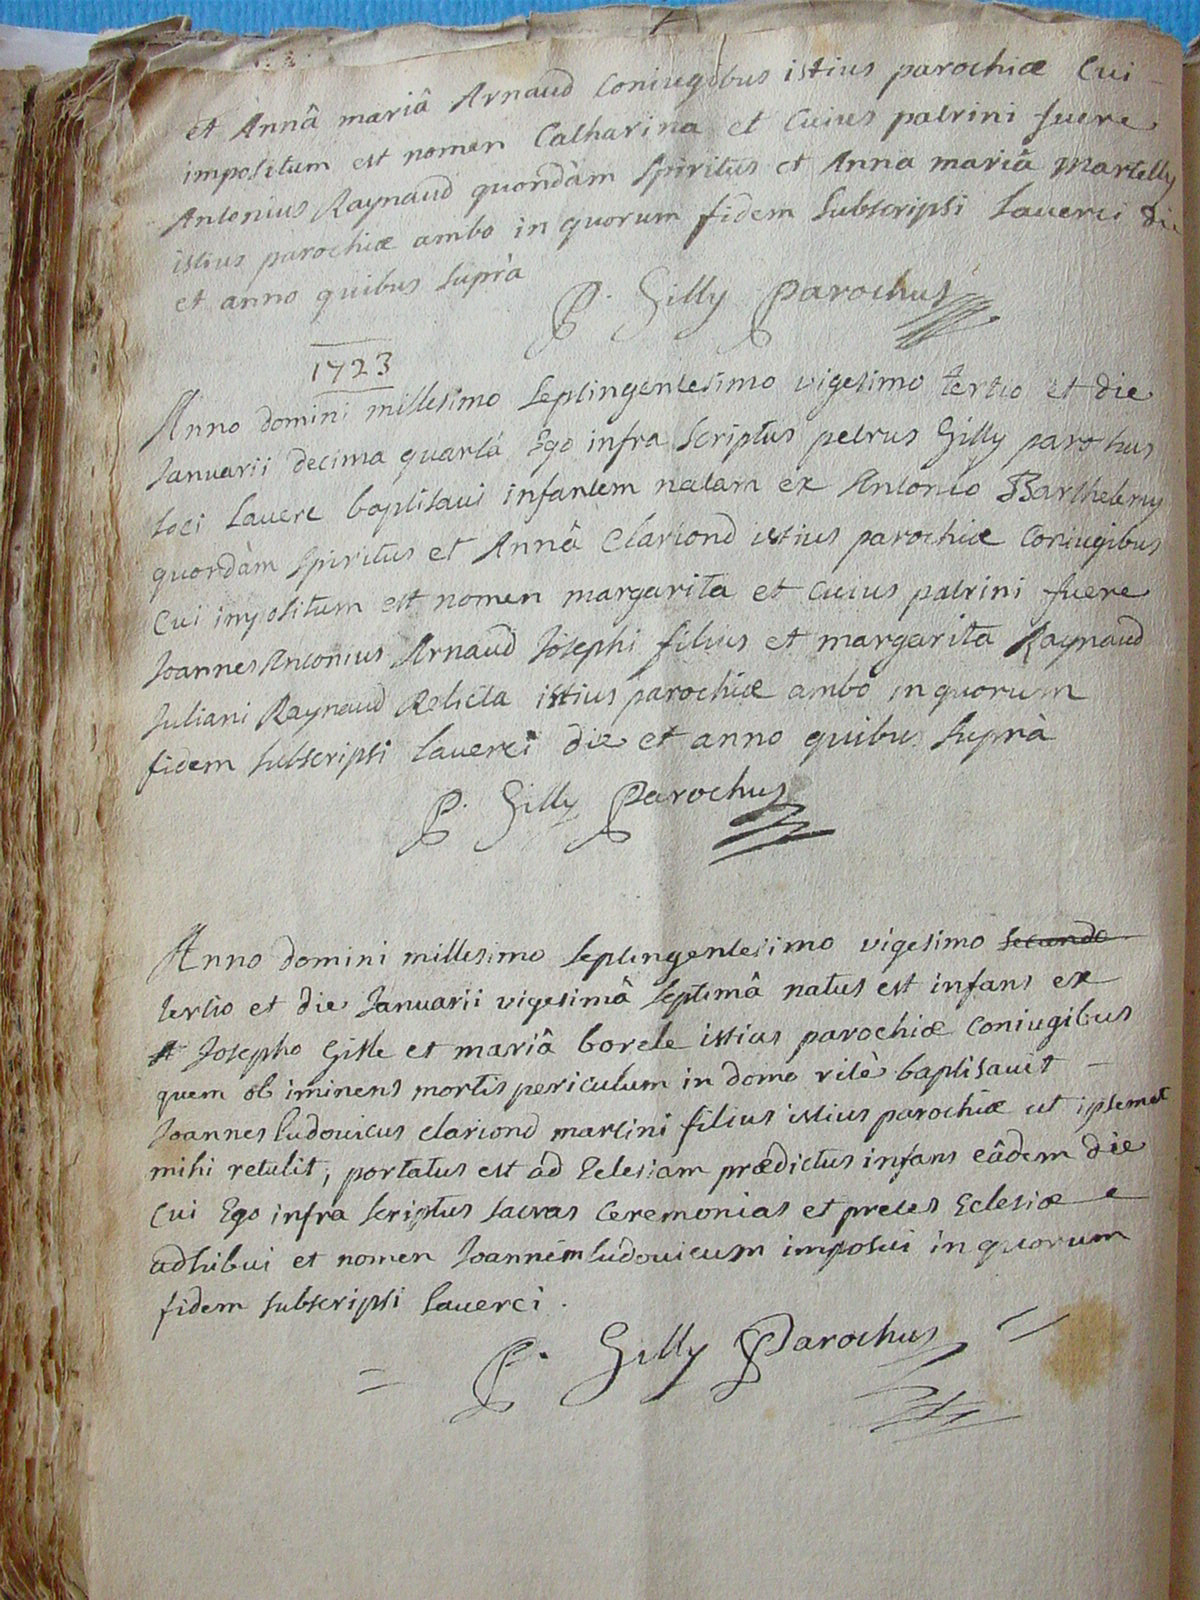 et Annâ mariâ Arnaud Coniugibus istius parochiæ Cui
impositum est nomen Catharina et Cuius patrini fuere
Antonius Raynaud quondàm Spiritus et Anna mariâ Martelly
istius parochiæ ambo in quorum fidem Subscripsi Laverci die
et anno quibus suprà
P. Gilly Parochus
1723
Anno domini millesimo Septingentesimo vigesimo tertio et die
Ianuarii decima quartâ Ego infra Scriptus petrus Gilly parochus
loci Laverc baptisavi infantem natam ex Antonio Barthelemy
quondàm Spiritus et Annâ Clariond istius parochiæ Coniugibus
Cui impositum est nomen margarita et Cuius patrini fuere
Joannes Antonius Arnaud Josephi filius et margarita Raynaud
Juliani Raynaud Relicta istius parochiæ ambo in quorum
fidem subscripsi Laverci die et anno quibus suprà
P. Gilly Parochus
Anno domini millesimo septingentesimo vigesimo secundo
tertio et die Ianuarii vigesimâ septimâ natus est infans ex
Josepho Gille et mariâ borele istius parochiæ Coniugibus
quem ob iminens mortis periculum in domo ritè baptisavit
Joannes ludovicus clariond martini filius istius parochiæ ut ipsemet
mihi retulit, portatus est ad Eclesiam prædictus infans eâdem die
Cui Ego infra scriptus sacras Ceremonias et preces Eclesiæ
adhibui et nomen Joannem ludovicum imposui in quorum
fidem subscripsi Laverci.
P. Gilly Parochus